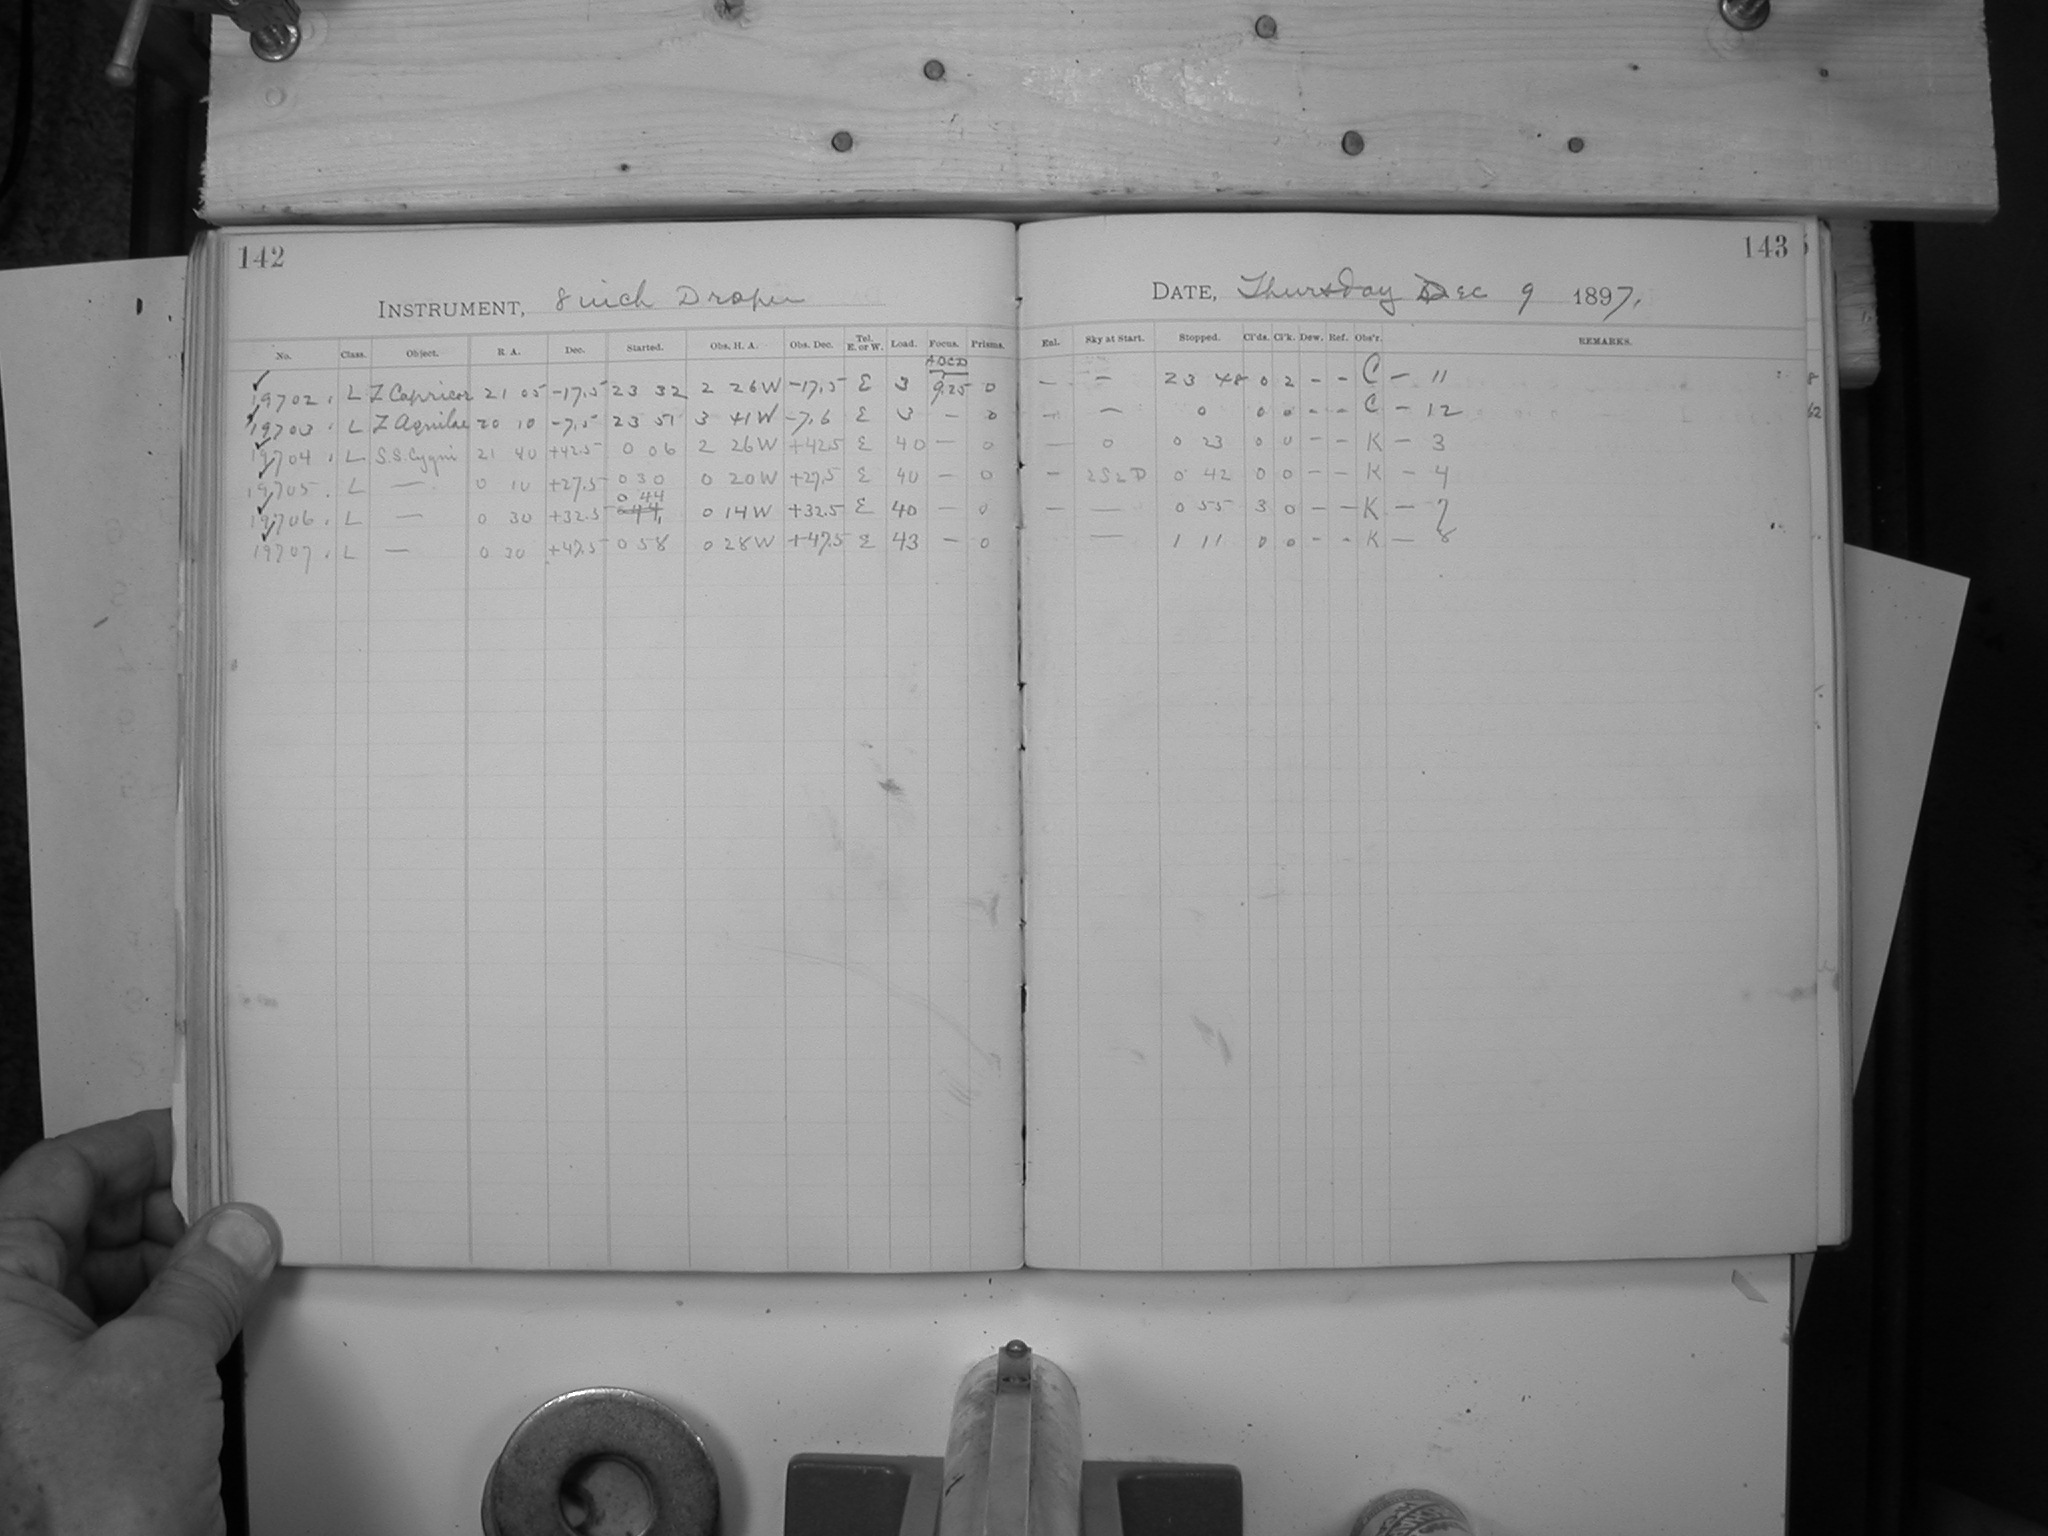 142
INSTRUMENT, 8 inch Draper
No. Class. Object. R. A. Dec. Started. Obs. H. A. Obs. Dec. Tel. E. or W. Load. Focus. Prisms.
ABCD
19702. L Z Capricor 21 05 -17.5 23 32 2 26W -17.5 E 3 9.25 0
19703. L Z Aquilae 20 10 -7.5 23 51 3 41W -7.6 E 3 — 0
19704. L S.S. Cygni 21 40 +42.5 0 06 2 26W +42.5 E 40 — 0
19705. L — 0 10 +27.5 0 30 0 20W +27.5 E 40 — 0
0 44
19706. L — 0 30 +32.5 0 14W +32.5 E 40 — 0
19707. L — 0 30 +47.5 0 58 0 28W +47.5 E 43 — 0
143
DATE, Thursday Dec 9 1897.
Enl. Sky at Start. Stopped. Cl'ds. Cl'k. Dew. Ref. Obs'r. REMARKS.
— — 23 48 0 2 - - C — 11
— — 0 0 0 - - C — 12
— 0 0 23 0 0 - - K — 3
— 2S2D 0 42 0 0 - - K — 4
— — 0 55 3 0 - - K — 7
— 1 11 0 0 - - K — 8
8
62